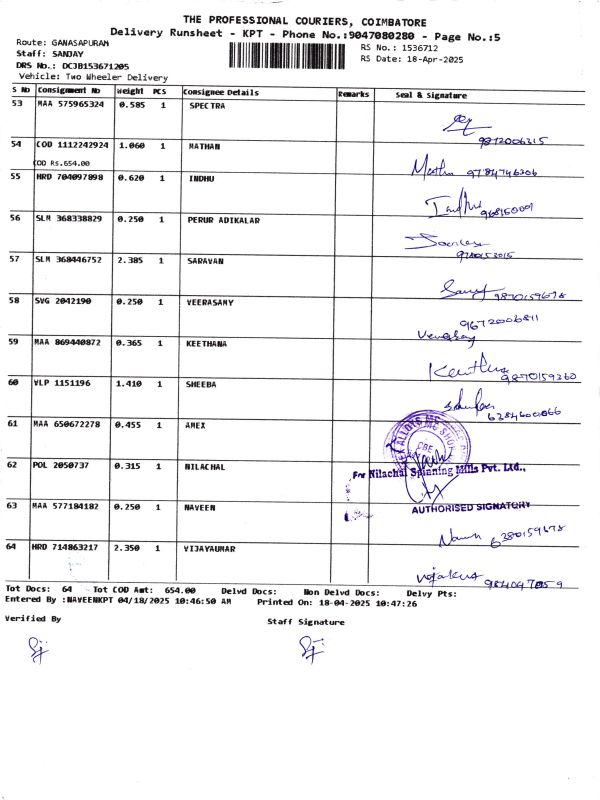 THE PROFESSIONAL COURIERS, COIMBATORE
Delivery Runsheet - KPT - Phone No.:9047080280 - Page No.:5
Route: GANASAPURAM
RS No.: 1536712
Staff: SANJAY
RS Date: 18-Apr-2025
DRS No.: DCJB153671205
Vehicle: Two Wheeler Delivery
S No Consignment No Weight PCS Consignee Details Remarks Seal & Signature
53 MAA 575965324 0.585 1 SPECTRA
9872006315
54 COD 1112242924 1.060 1 MATHAN
COD Rs.654.00
9784746306
55 HRD 704097898 0.620 1 INDHU
Indhu
56 SLM 368338829 0.250 1 PERUR ADIKALAR
57 SLM 368446752 2.385 1 SARAVAN
9870159678
58 SVG 2042190 0.250 1 VEERASAMY
59 MAA 869440872 0.365 1 KEETHANA
9870159360
60 VLP 1151196 1.410 1 SHEEBA
61 MAA 650672278 0.455 1 AMEX
62 POL 2050737 0.315 1 NILACHAL
For Nilachal Spinning Mills Pvt. Ltd.,
63 MAA 577184182 0.250 1 NAVEEN
AUTHORISED SIGNATORY
6380159678
64 HRD 714863217 2.350 1 VIJAYAUMAR
Tot Docs: 64 Tot COD Amt: 654.00 Delvd Docs: Non Delvd Docs: Delvy Pts:
Entered By :NAVEENKPT 04/18/2025 10:46:50 AM Printed On: 18-04-2025 10:47:26
Verified By
Staff Signature